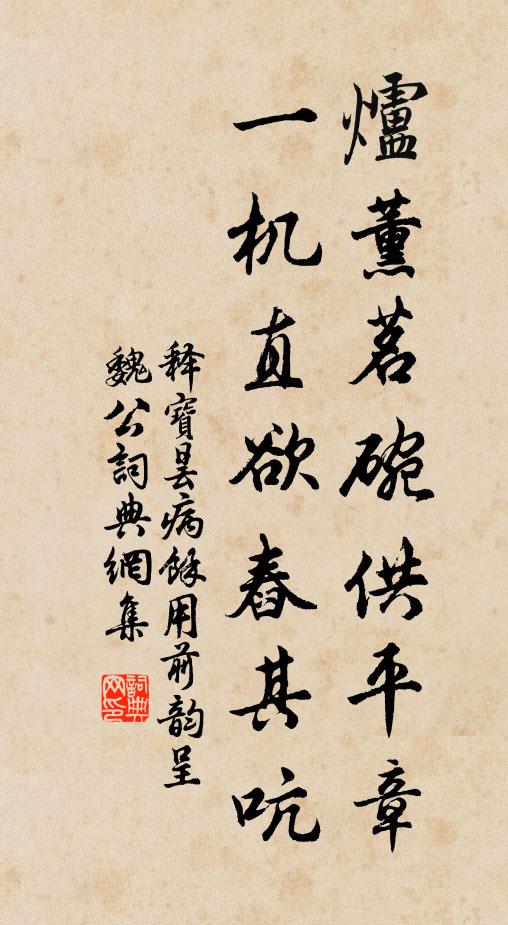 爐薰茗碗供平章
一机直欲舂其吭
释寶曇病餘用前韵呈
魏公詞典網集
詞典网印